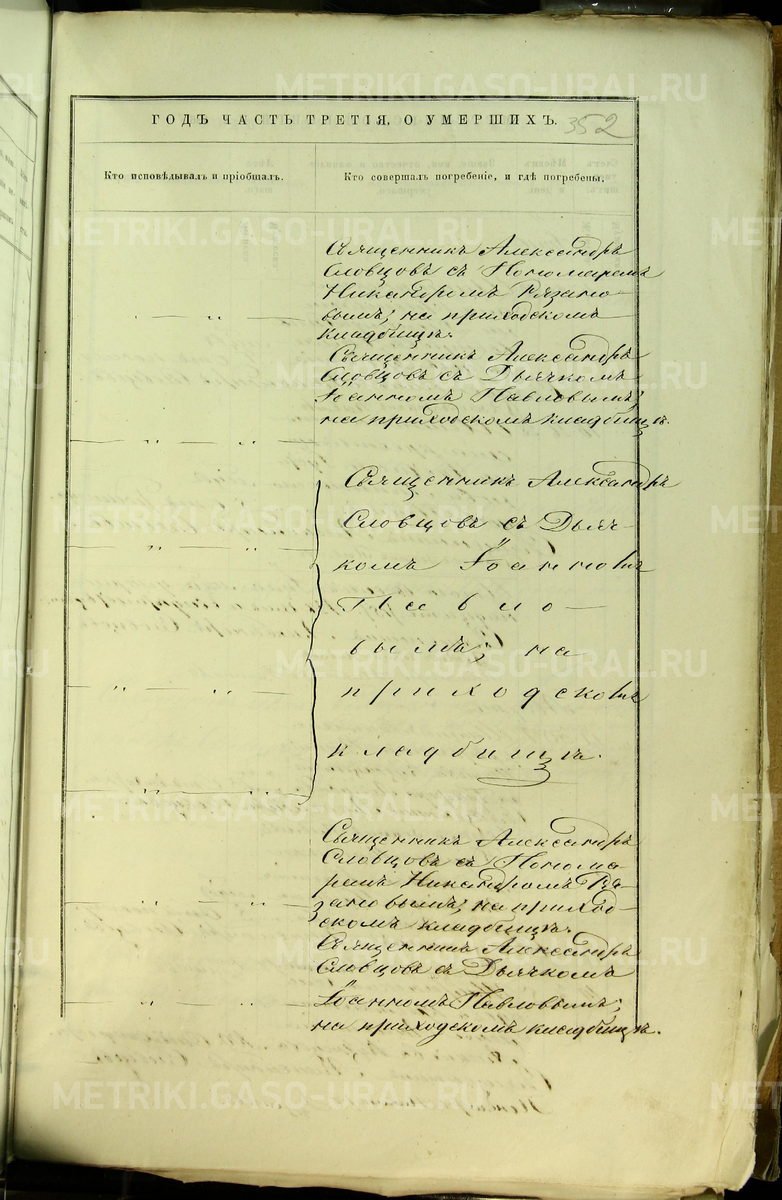 ГОДЪ ЧАСТЬ ТРЕТІЯ, О УМЕРШИХЪ.
352
Кто исповѣдывалъ и пріобщалъ.
Кто совершалъ погребеніе, и гдѣ погребены.
Священникъ Александръ
Словцовъ съ Пономаремъ
Никандромъ Рязано-
вымъ; на приходскомъ
кладбищѣ.
Священникъ Александръ
Словцовъ съ Дьячкомъ
Іоанномъ Павловымъ;
на приходскомъ кладбищѣ.
Священникъ Александръ
Словцовъ съ Дьяч-
комъ Іоанномъ
Павло-
вымъ; на
приходскомъ
кладбищѣ.
Священникъ Александръ
Словцовъ съ Понома-
ремъ Никандромъ Ря-
зановымъ; на приход-
скомъ кладбищѣ.
Священникъ Александръ
Словцовъ съ Дьячкомъ
Іоанномъ Павловымъ;
на приходскомъ кладбищѣ.
METRIKI.GASO-URAL.RU